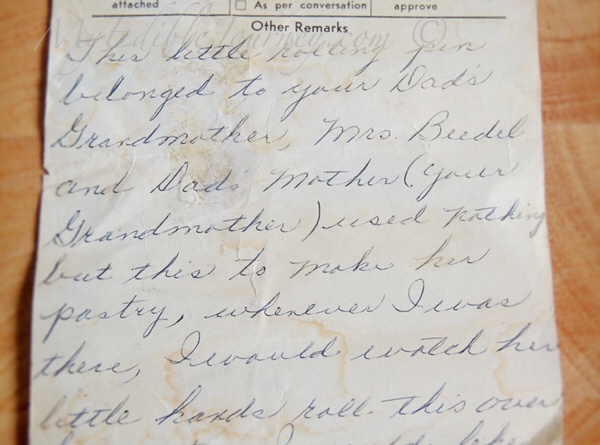 attached
As per conversation
approve
Other Remarks
This little rolling pin
belonged to your Dad's
Grandmother, Mrs. Beedel
and Dad's Mother (your
Grandmother) used nothing
but this to make her
pastry, whenever I was
there, I would watch her
little hands roll this over
I would like